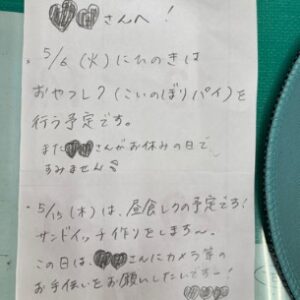 さんへ!
* 5/6 (火)にひのきは
おやつレク(こいのぼりパイ)を
行う予定です。
また さんがお休みの日で、
すみません
・5/15(木)は、昼食レクの予定です!
サンドイッチ作りをしま〜。
この日は、 さんにカメラ等の
お手伝いをお願いしたいです〜!